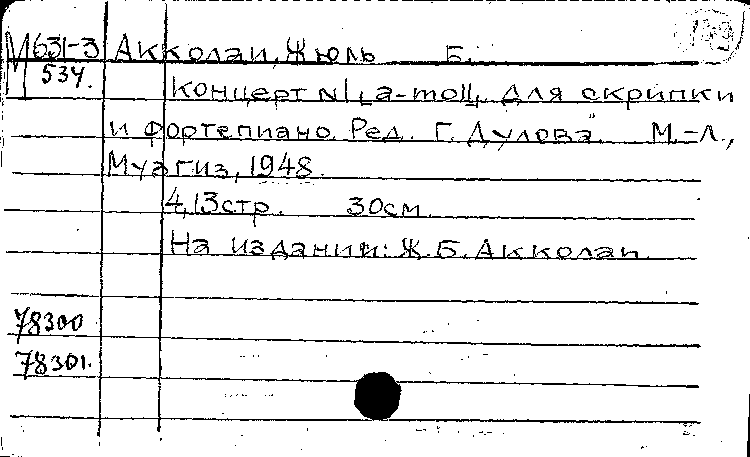 199
М631-3 Акколаи, Жюль Б.
534.
Концерт №1 [a-moll], для скрипки
и фортепиано. Ред. Г. Дулова. М.-Л.,
Музгиз, 1948.
4,13стр. 30см.
На издании: Ж.Б. Акколаи.
78300
78301.